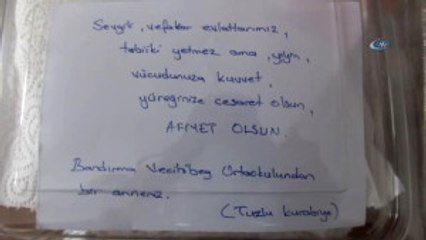 Sevgili, vefakar evlatlarımız,
tabiiki yetmez ama, yiyin,
vücudunuza kuvvet,
yüreğinize cesaret olsun,
AFİYET OLSUN.
Bandırma Vecihibey Ortaokulundan
bir anneniz.
(Tuzlu kurabiye)